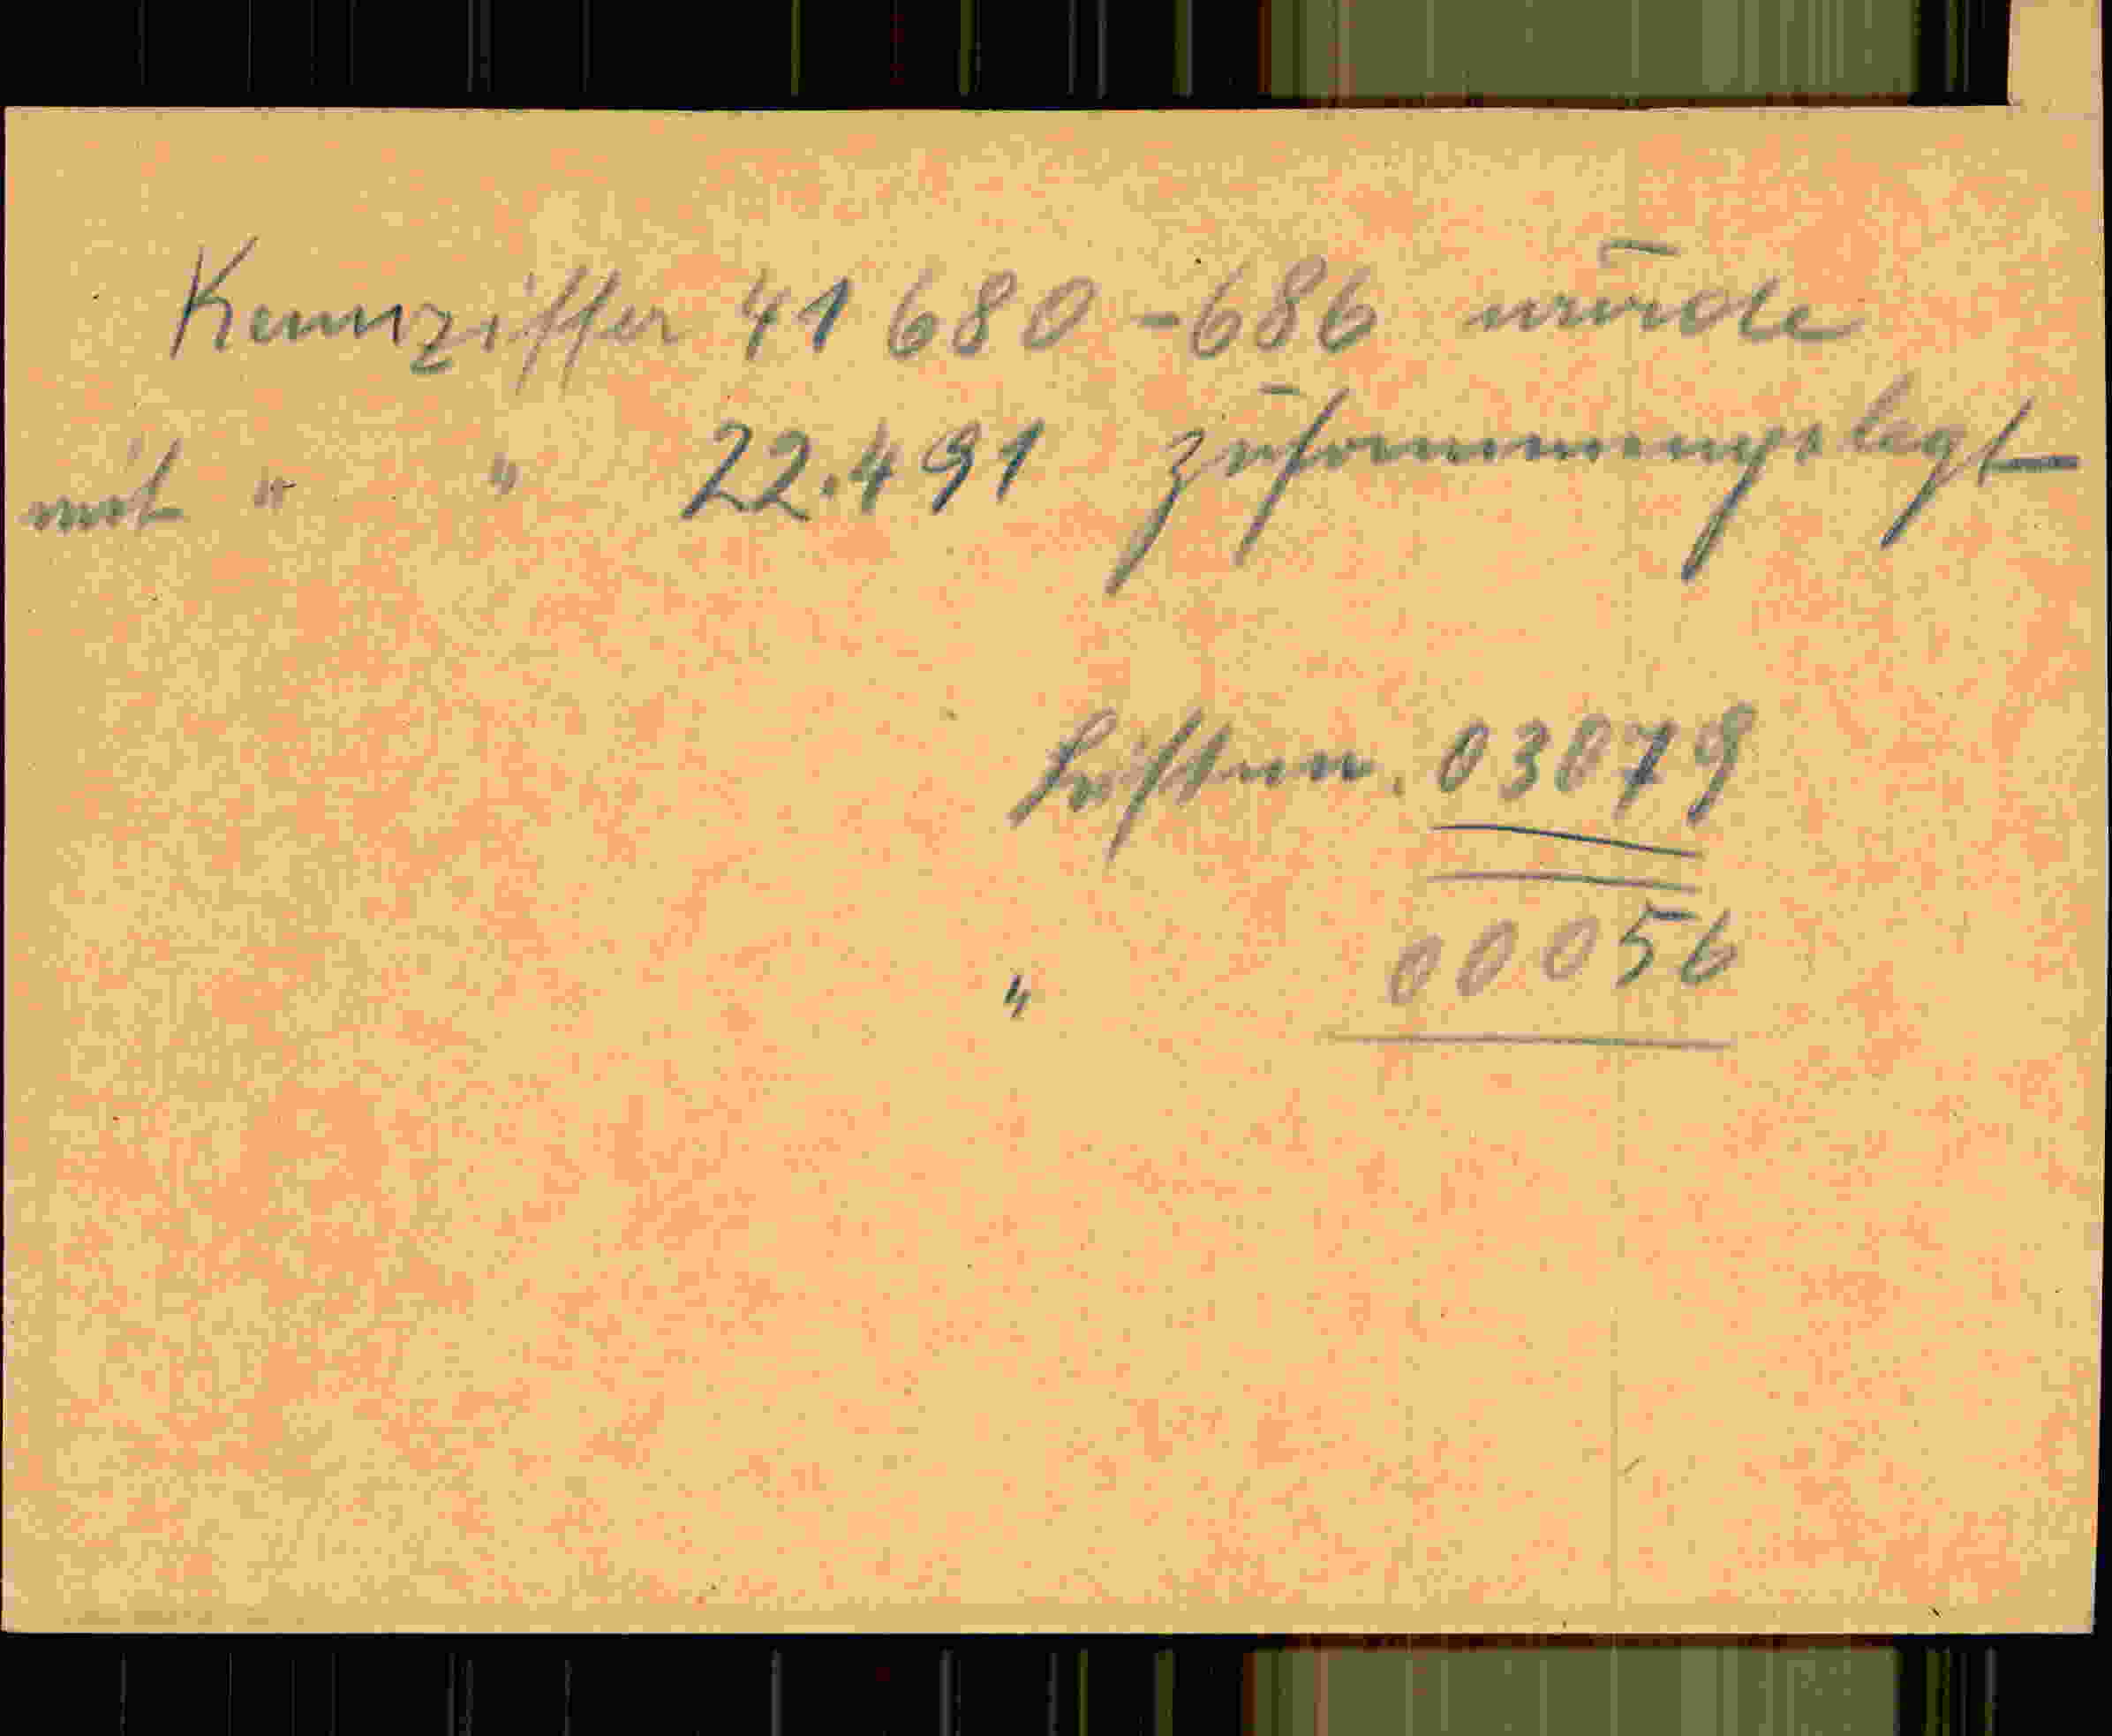 Kennziffer 41 680 - 686 wurde
mit " " 22.491 zusammengelegt
03879
" 00056